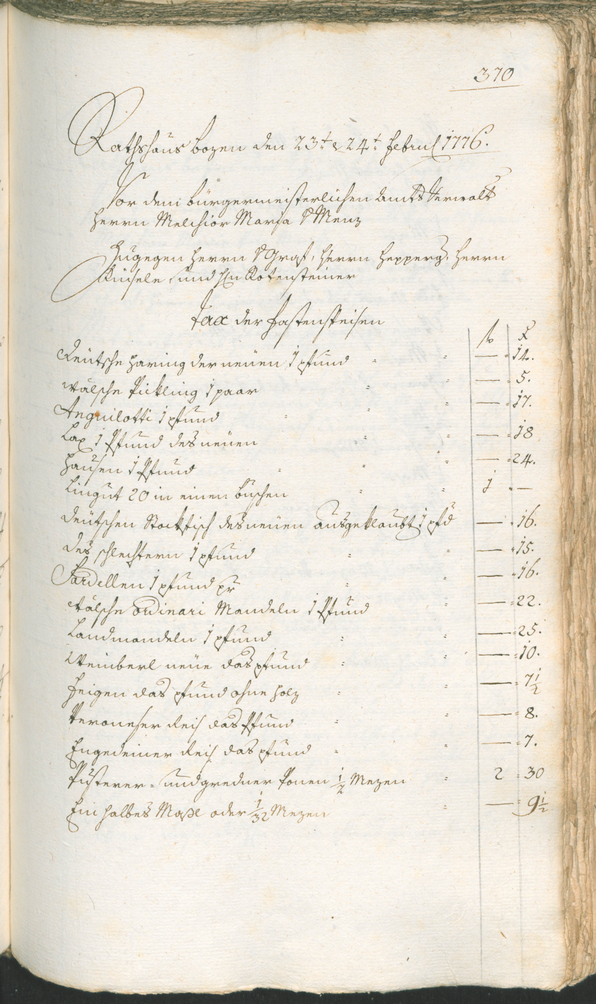 370
Rathshaus bozen den 23t. & 24t. Febru 1776.
Vor dem bürgermeisterlichen Amts Verwalt
Herrn Melchior Maria v Menz
Zugegen Herrn v Graf, Herrn Hepperg, Herrn
und H. Rotensteiner
tax der Fastenspeisen
Haring der neuen 1 pfund — 14.
wälsche Pickling 1 paar — 5.
Anguilotti 1 pfund — 17.
Lax 1 Pfund des neuen — 18
Hausen 1 Pfund — 24.
20 in einen buschen 1 —
deutschen Stockfisch des neuen ausgeklaubt 1 pfd — 16.
des schlechtern 1 pfund — 15.
Sardellen 1 pfund — 16.
wälsche ordinari Mandeln 1 Pfund — 22.
Landmandeln 1 pfund — 25.
Weinberl neue das pfund — 10.
Feigen das pfund ohne holz — 7½
Veroneser Reis das Pfund — 8.
Reis das pfund — 7.
Pusterer- und gredner Ponen ½ Mezen 2 30
Ein halbes Maßl oder 1/32 Mezen — 9½